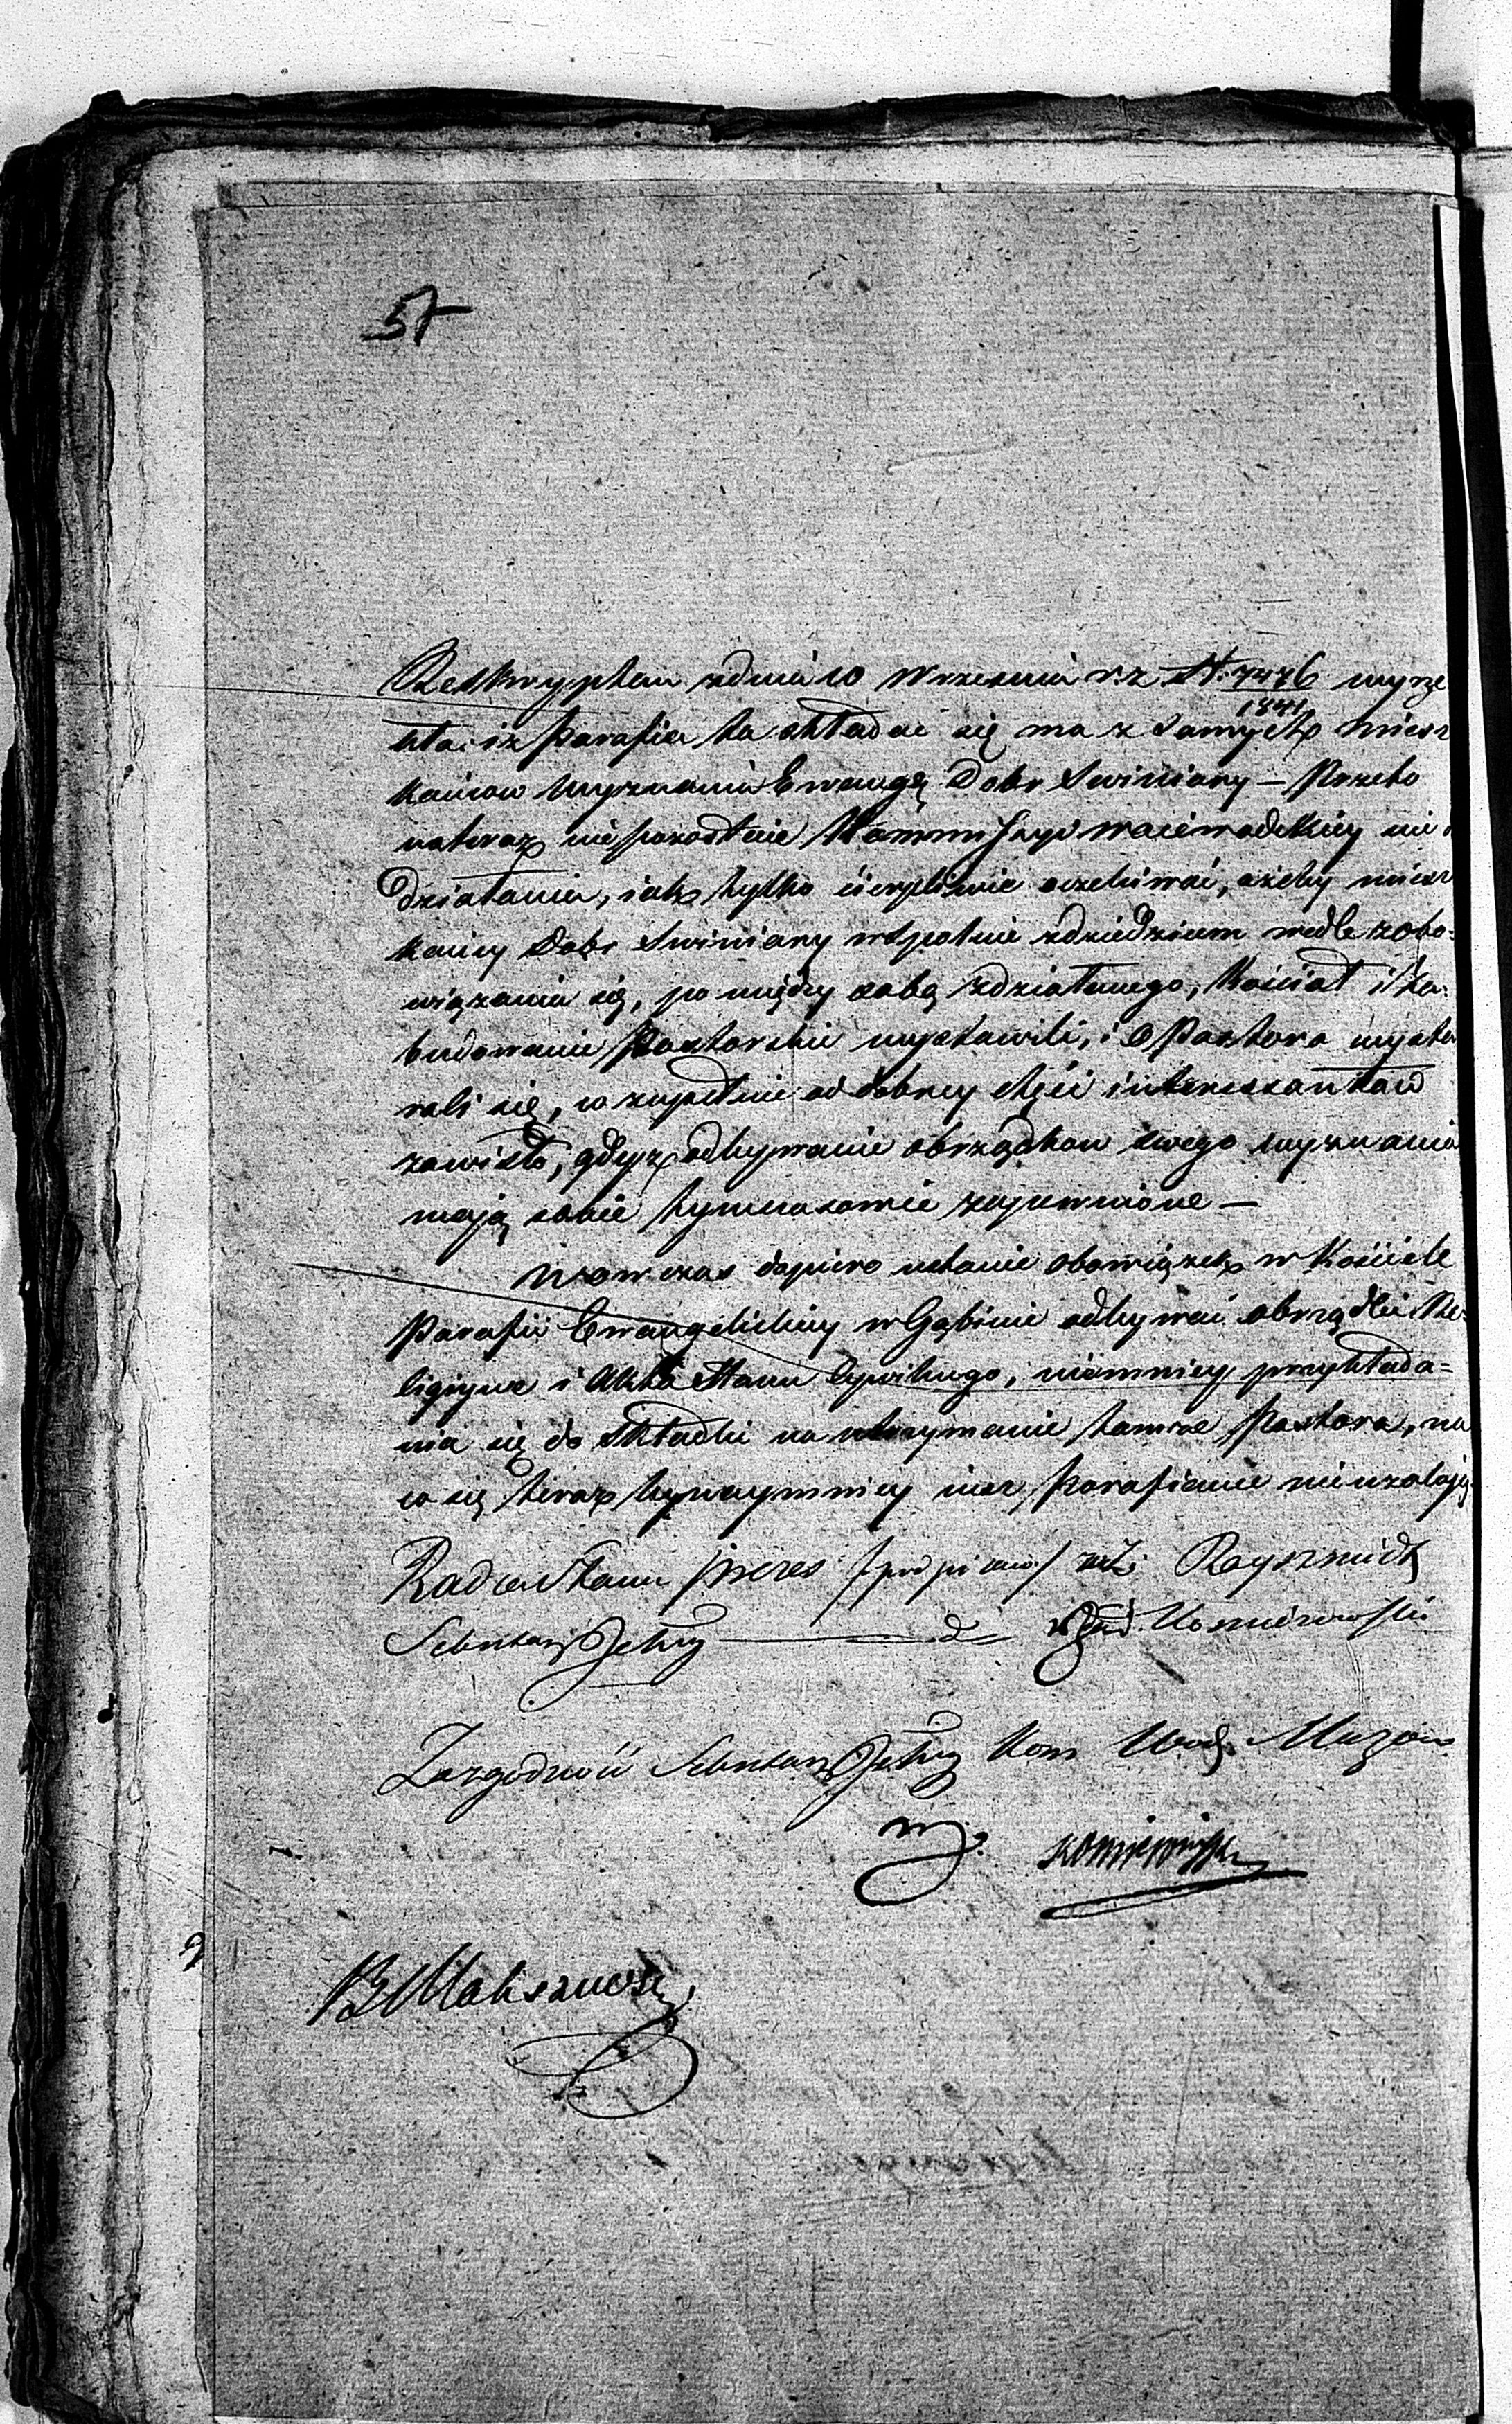 57
Reskryptem zdnia 10 Września r. z. N. 7476/1841 wyrze
kła, iż Parafia ta składać się ma z samych miesz
kańców wyznania Ewangę Dobr Swiniary – Przeto
nateraz niepozostaie Kommissyi woiewodzkiey nic
działania, iak tylko cierpliwie oczekiwać, ażeby miesz
kańcy Dobr Swiniary wspolnie zdziedzicem wedle zobo=
wiązania się, po między sobą zdziałanego, Kościoł i Za=
budowanie Pastorskie wystawili, i o Pastora wysta
rali się, co zupełnie od dobrey chęci interessantow
zawisło, gdyż odbywanie obrządkow swego wyznania
mają sobie tymczasowie zapewnione –
Wowczas dopiero ustanie obowiązek w Kościele
Parafii Ewangelickiey w Gąbinie odbywać obrządki Re=
ligiyne i Akta Stanu Cywilnego, niemniey przykłada=
nia się do składki na utrzymanie tamże Pastora, na
co się teraz bynaymniey ciez Parafianie nieużalają
Radca Stanu Prezes /podpisano/ Rayszmidt
Sekretarz Jlny d Komierowski
Zazgodność Sekretarz Jlny Kom Woj. Mazow
Komierowski